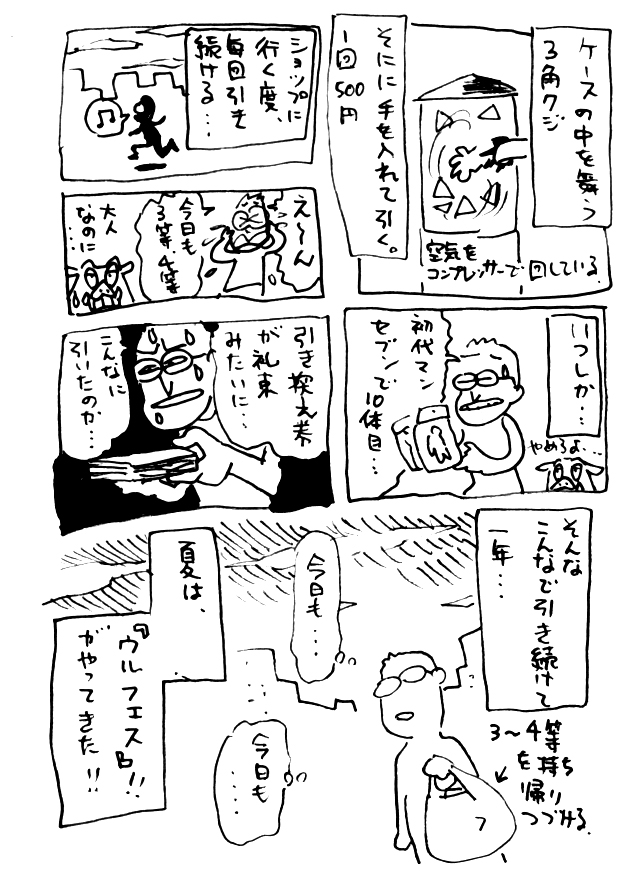 ケースの中を舞う
3角クジ
そこに手を入れて引く。
1回500円
空気を
コンプレッサーで回している
ショップに
行く度、
毎回引き
続ける…
え〜ん
今日も
3等、4等
大人
なのに…
いつしか…
初代マン
セブンで
10体目…
やめろよ…
引き換え券
が札束
みたいに…
こんなに
引いたのか…
そんな
こんなで引き続けて
一年…
3〜4等
を持ち
帰り
つづける。
今日も…
今日も
…
夏は、
『ウルフェス』!!
がやってきた!!